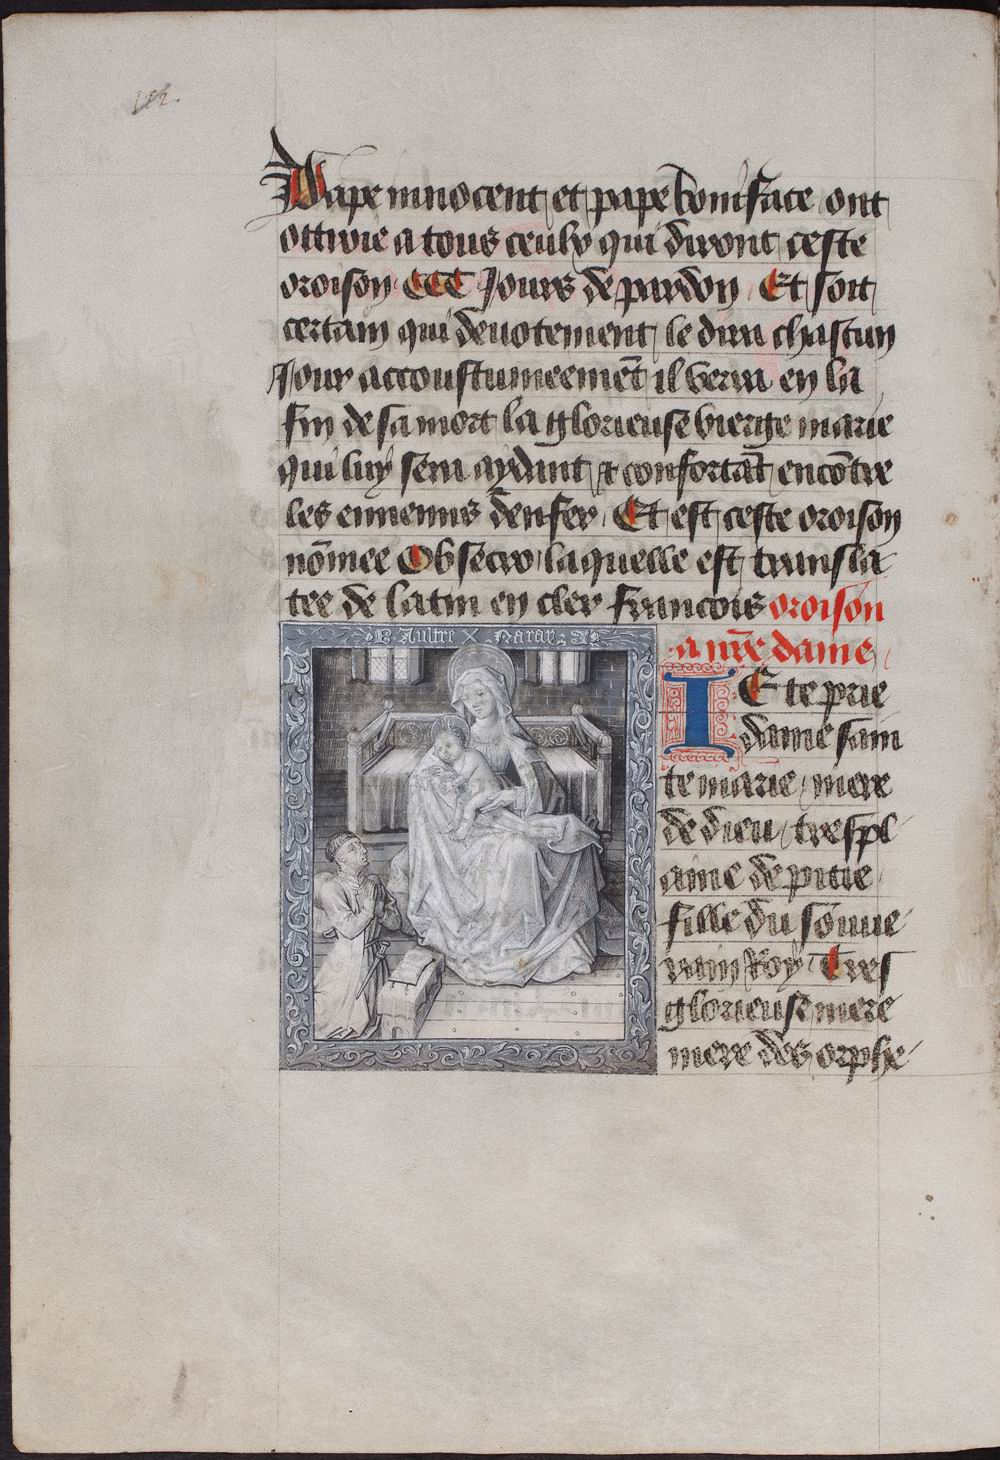 Pape innocent et pape boniface ont
ottroie a tous ceulx qui diront ceste
oroison CCC Jours de pardon Et soit
certain qui deuotement le dira chascun
Jour accoustumeemēt il verra en la
fin de sa mort la glorieuse vierge marie
qui luy sera aydant & confortāt encōtre
les ennemis denfer Et est ceste oroison
nōmee Obsecro laquelle est transla
tee de latin en cler francois oroison
a nr̄e dame
Aultre Naray
IE te prie
dame sain
te marie mere
de dieu trespl
aine de pitie
fille du souue
rain Roy Tres
glorieuse mere
mere des orphe